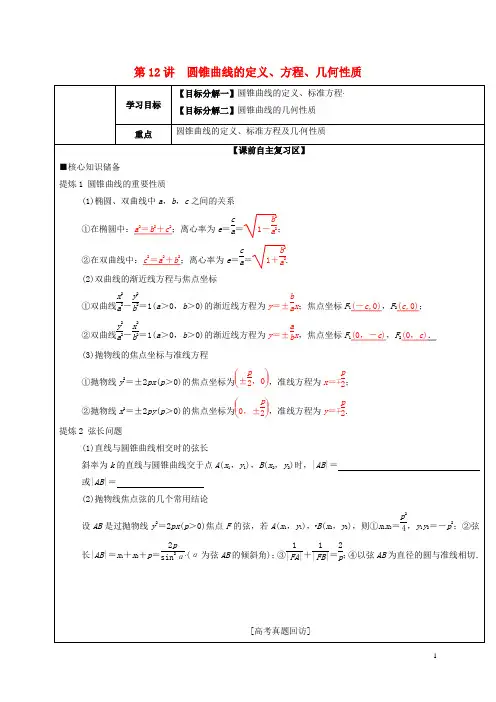 第12讲 圆锥曲线的定义、方程、几何性质
学习目标
【目标分解一】圆锥曲线的定义、标准方程
【目标分解二】圆锥曲线的几何性质
重点
圆锥曲线的定义、标准方程及几何性质
【课前自主复习区】
■核心知识储备
提炼1 圆锥曲线的重要性质
(1)椭圆、双曲线中a，b，c之间的关系
①在椭圆中：a²＝b²＋c²；离心率为e＝c/a＝√(1－b²/a²)；
②在双曲线中：c²＝a²＋b²；离心率为e＝c/a＝√(1＋b²/a²).
(2)双曲线的渐近线方程与焦点坐标
①双曲线x²/a²－y²/b²＝1(a＞0，b＞0)的渐近线方程为y＝±b/a x；焦点坐标F₁(－c,0)，F₂(c,0)；
②双曲线y²/a²－x²/b²＝1(a＞0，b＞0)的渐近线方程为y＝±a/b x，焦点坐标F₁(0，－c)，F₂(0，c).
(3)抛物线的焦点坐标与准线方程
①抛物线y²＝±2px(p＞0)的焦点坐标为(±p/2，0)，准线方程为x＝∓p/2；
②抛物线x²＝±2py(p＞0)的焦点坐标为(0，±p/2)，准线方程为y＝∓p/2.
提炼2 弦长问题
(1)直线与圆锥曲线相交时的弦长
斜率为k的直线与圆锥曲线交于点A(x₁，y₁)，B(x₂，y₂)时，|AB|＝
或|AB|＝
(2)抛物线焦点弦的几个常用结论
设AB是过抛物线y²＝2px(p＞0)焦点F的弦，若A(x₁，y₁)，B(x₂，y₂)，则①x₁x₂＝p²/4，y₁y₂＝－p²；②弦
长|AB|＝x₁＋x₂＋p＝2p/sin²α(α为弦AB的倾斜角)；③1/|FA|＋1/|FB|＝2/p；④以弦AB为直径的圆与准线相切.
[高考真题回访]
1